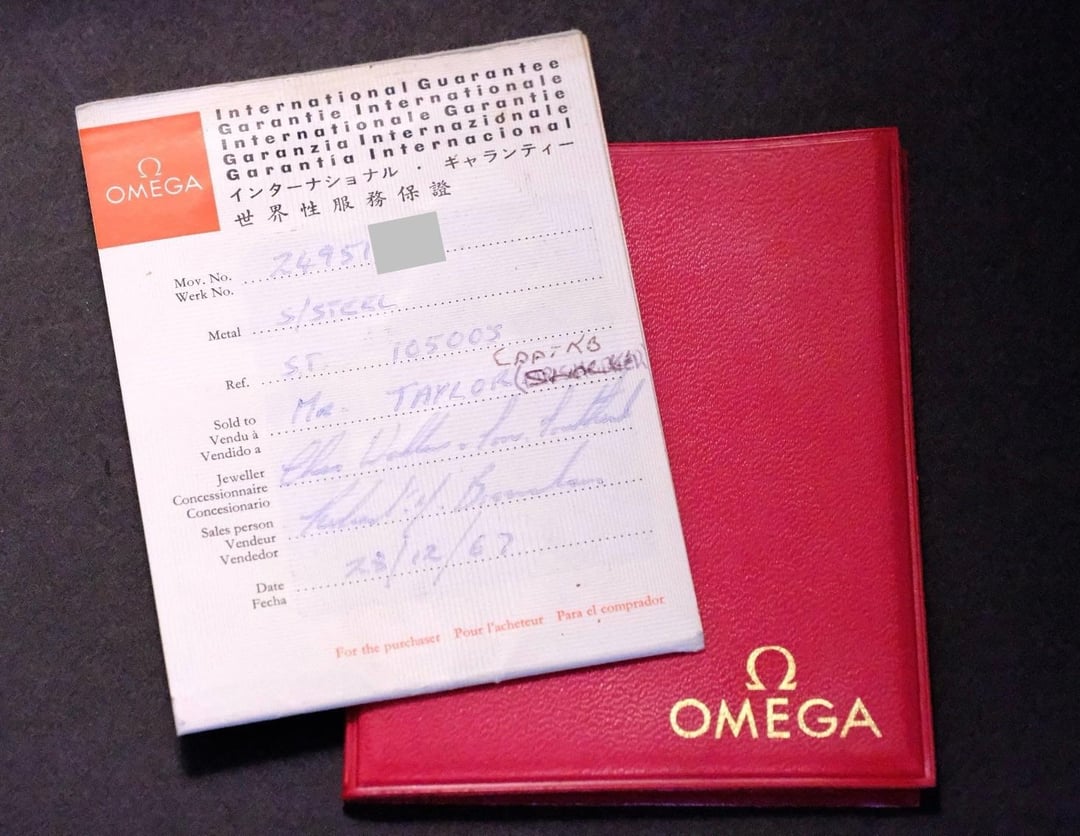 International Guarantee
Garantie Internationale
Internationale Garantie
Garanzia Internazionale
Garantía Internacional
インターナショナル · ギャランティー
世界性服務保證
Ω
OMEGA
Mov. No. 24951
Werk No.
Metal S/STEEL
Ref. ST. 105005
Sold to Mr. TAYLOR
Vendu à
Vendido a
Jeweller
Concessionnaire
Concesionario
Sales person
Vendeur
Vendedor
Date 28/12/67
Fecha
For the purchaser Pour l'acheteur Para el comprador
Ω
OMEGA